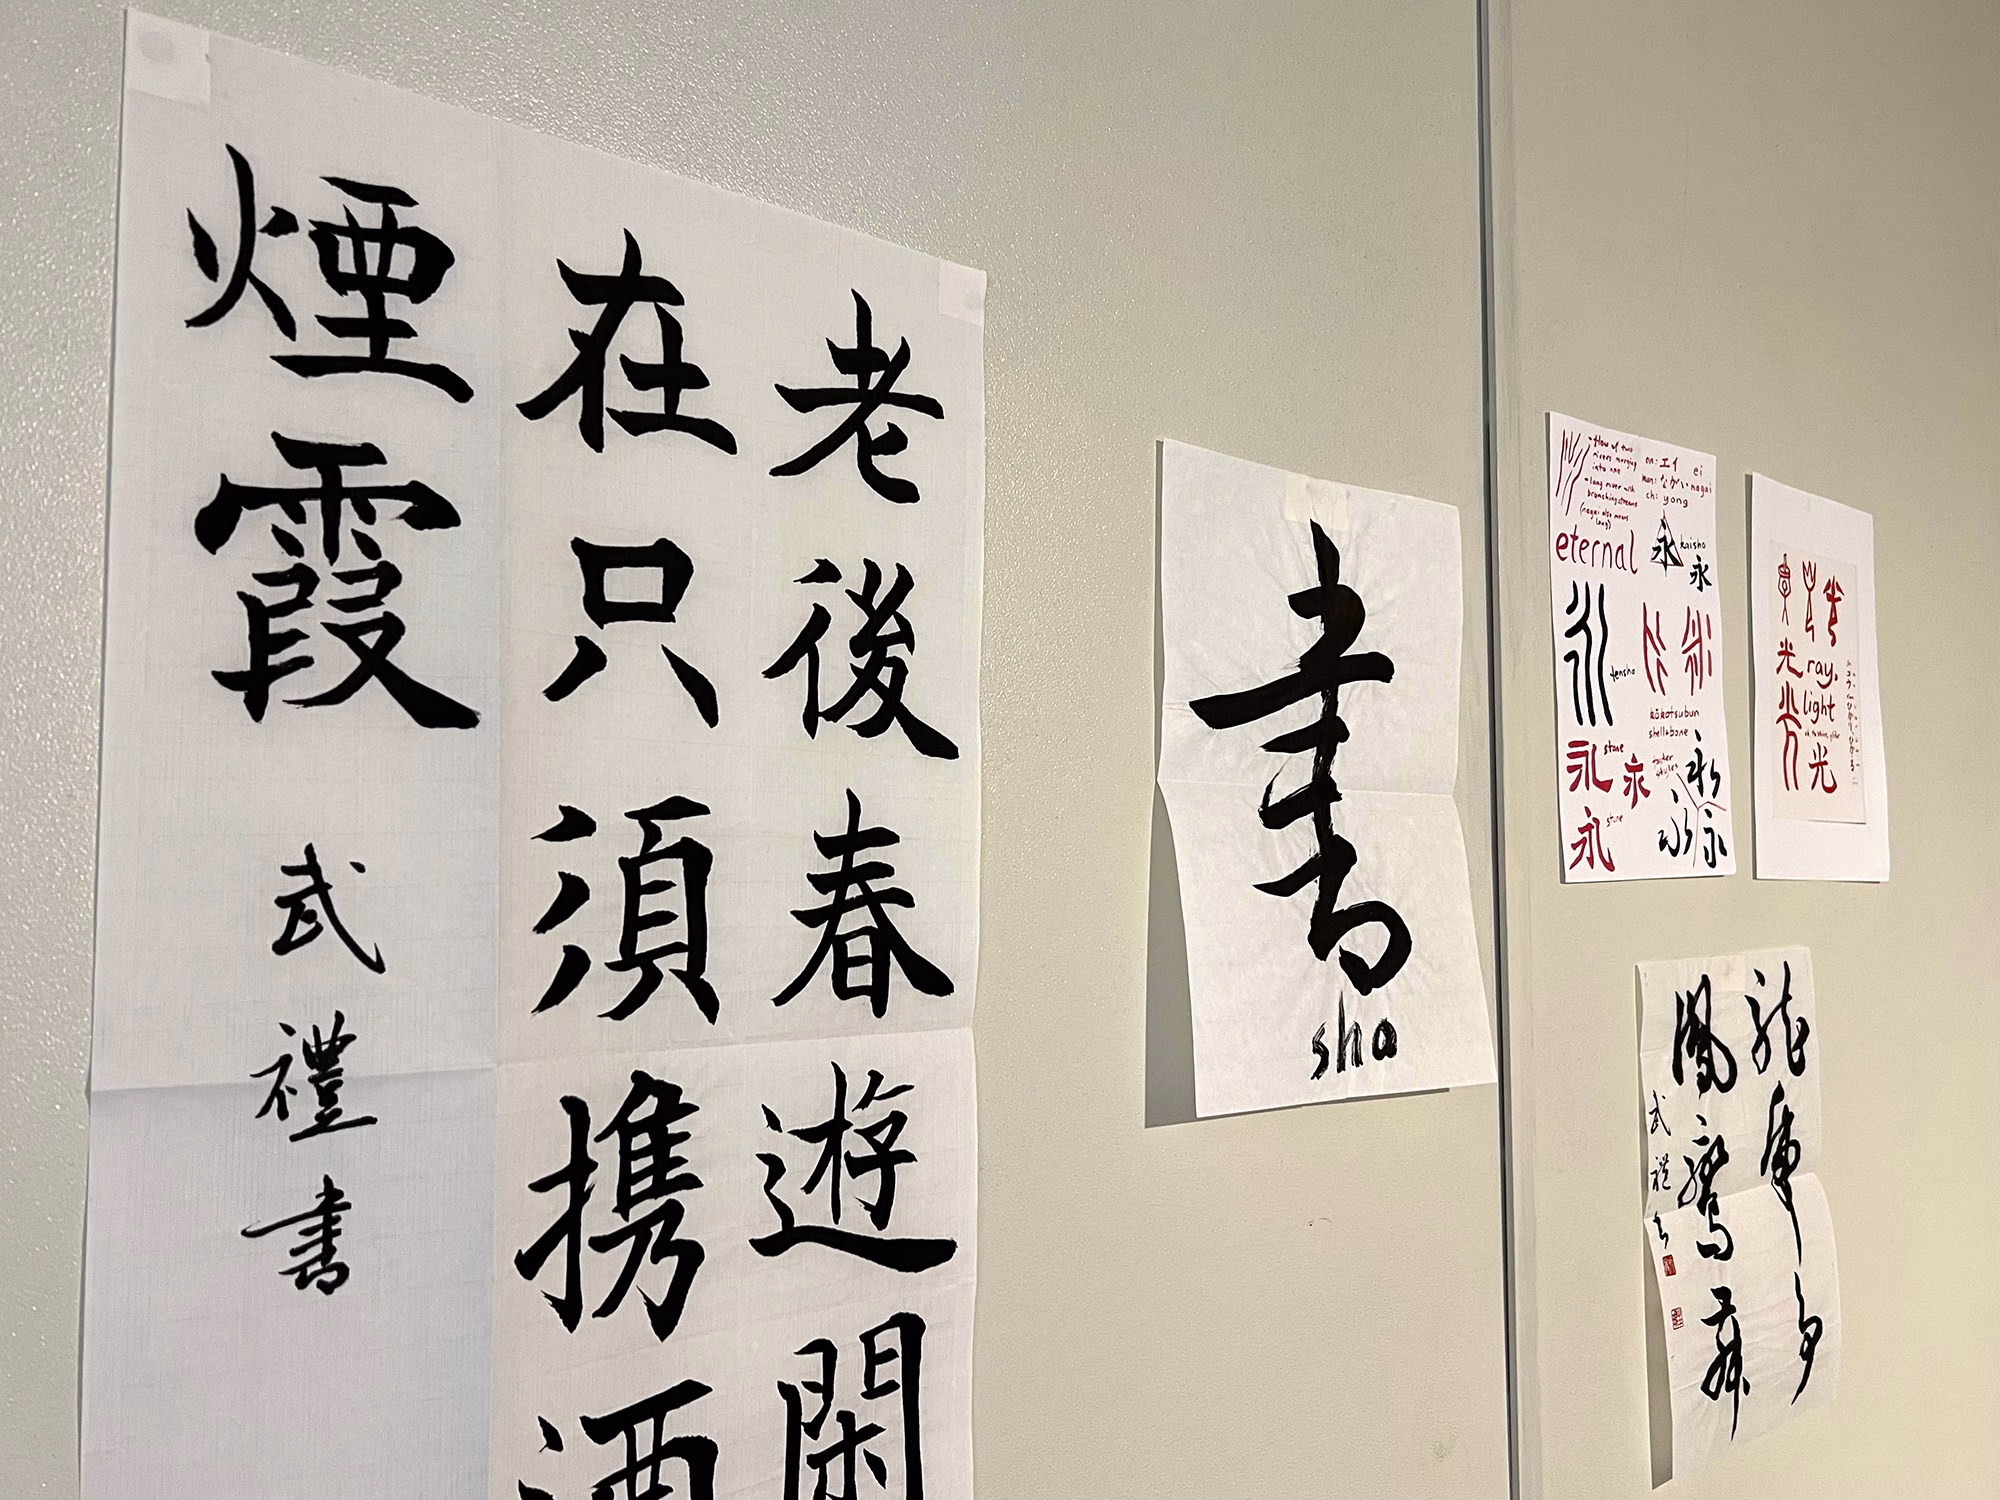 老後春遊閑
在只須携酒
煙霞
武禮書
書
sho
- flow of two
rivers merging
into one
- long river with
branching streams
(nagai also means
long)
on: エイ ei
kun: ながい nagai
ch: yong
eternal
永 kaisho
永
tensho
kōkotsubun
shell+bone
永 stone
永
永 stone
永
永
永
光
ray,
light
光
龍
鳳
武禮